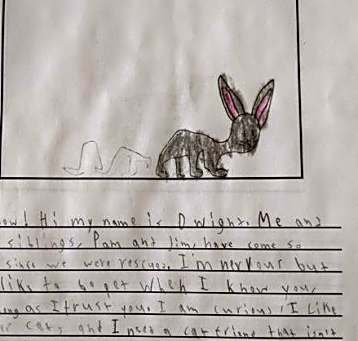 ow! Hi my name is Dwight. Me and
siblings, Pam and Jim, have come so
since we were rescued. I'm nervous but
like to be pet when I know you,
ong as I trust you. I am curious! I Like
er cats and I need a cat friend that isn't